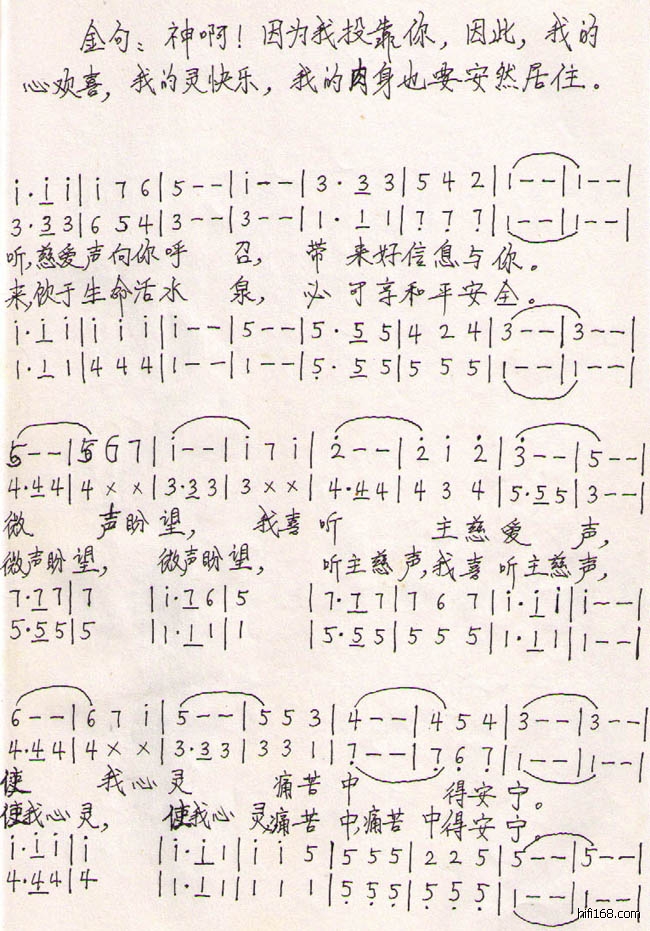 金句：神啊！因为我投靠你，因此，我的
心欢喜，我的灵快乐，我的肉身也要安然居住。
i·i i|i 7 6|5--|i--|3·3 3|5 4 2|1--|1--|
3·3 3|6 5 4|3--|3--|1·1 1|7 7 7|1--|1--|
听，慈爱声向你呼 召，带 来好信息与你。
来，饮于生命活水 泉，必 可享和平安全。
i·i i|i i i|i--|5--|5·5 5|4 2 4|3--|3--|
1·1 1|4 4 4|1--|1--|5·5 5|5 5 5|1--|1--|
5--|5 6 7|i--|i 7 i|2--|2 i 2|3--|5--|
4·4 4|4 × ×|3·3 3|3 × ×|4·4 4|4 3 4|5·5 5|3--|
微 声盼望， 我喜听 主慈爱 声，
微声盼望， 微声盼望， 听主慈声，我喜听主慈声，
7·7 7|7 |i·7 6|5 |7·7 7|7 6 7|i·i i|i--|
5·5 5|5 |1·1 1|1 |5·5 5|5 5 5|1·1 1|1--|
6--|6 7 i|5--|5 5 3|4--|4 5 4|3--|3--|
4·4 4|4 × ×|3·3 3|3 3 1|7--|7 6 7|1--|1--|
使 我心灵 痛苦中 得安宁。
使我心灵， 使我心灵痛苦中，痛苦中得安宁。
i·i i|i |i·i 1|i i 5|5 5 5|2 2 5|5--|5--|
4·4 4|4 |1·1 1|1 1 1|5 5 5|5 5 5|1--|1--|
hifi168.com